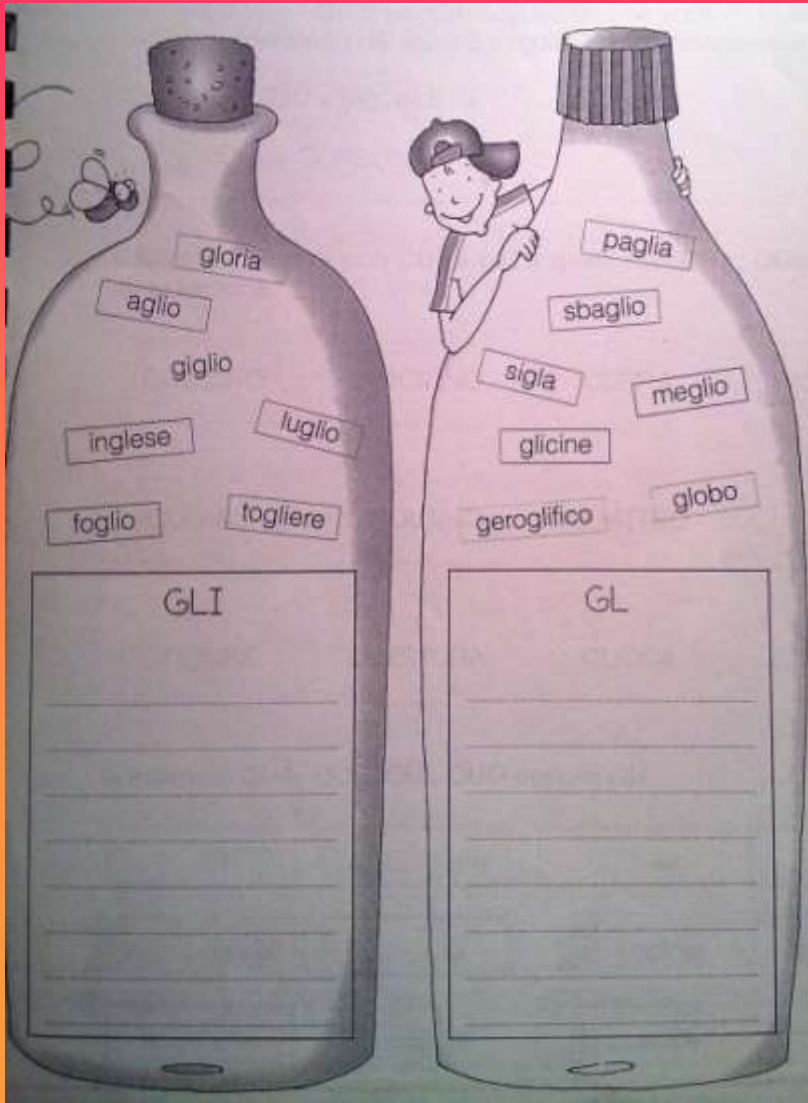 gloria
aglio
giglio
inglese
luglio
foglio
togliere
GLI
paglia
sbaglio
sigla
meglio
glicine
geroglifico
globo
GL